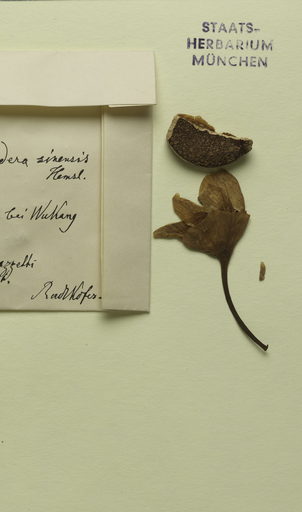 STAATS-
HERBARIUM
MÜNCHEN
dera sinensis
Hemsl.
bei Wukang
Radlkofer.